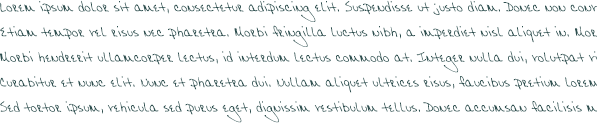 Lorem ipsum dolor sit amet, consectetur adipiscing elit. Suspendisse ut justo diam. Donec non
Etiam tempor vel risus nec pharetra. Morbi fringilla luctus nibh, a imperdiet nisl aliquet in. Mor
Morbi hendrerit ullamcorper lectus, id interdum lectus commodo at. Integer nulla dui, volutpat vi
curabitur et nunc elit. Nunc et pharetra dui. Nullam aliquet ultrices risus, faucibus pretium lorem
Sed tortor ipsum, vehicula sed purus eget, dignissim vestibulum tellus. Donec accumsan facilisis m